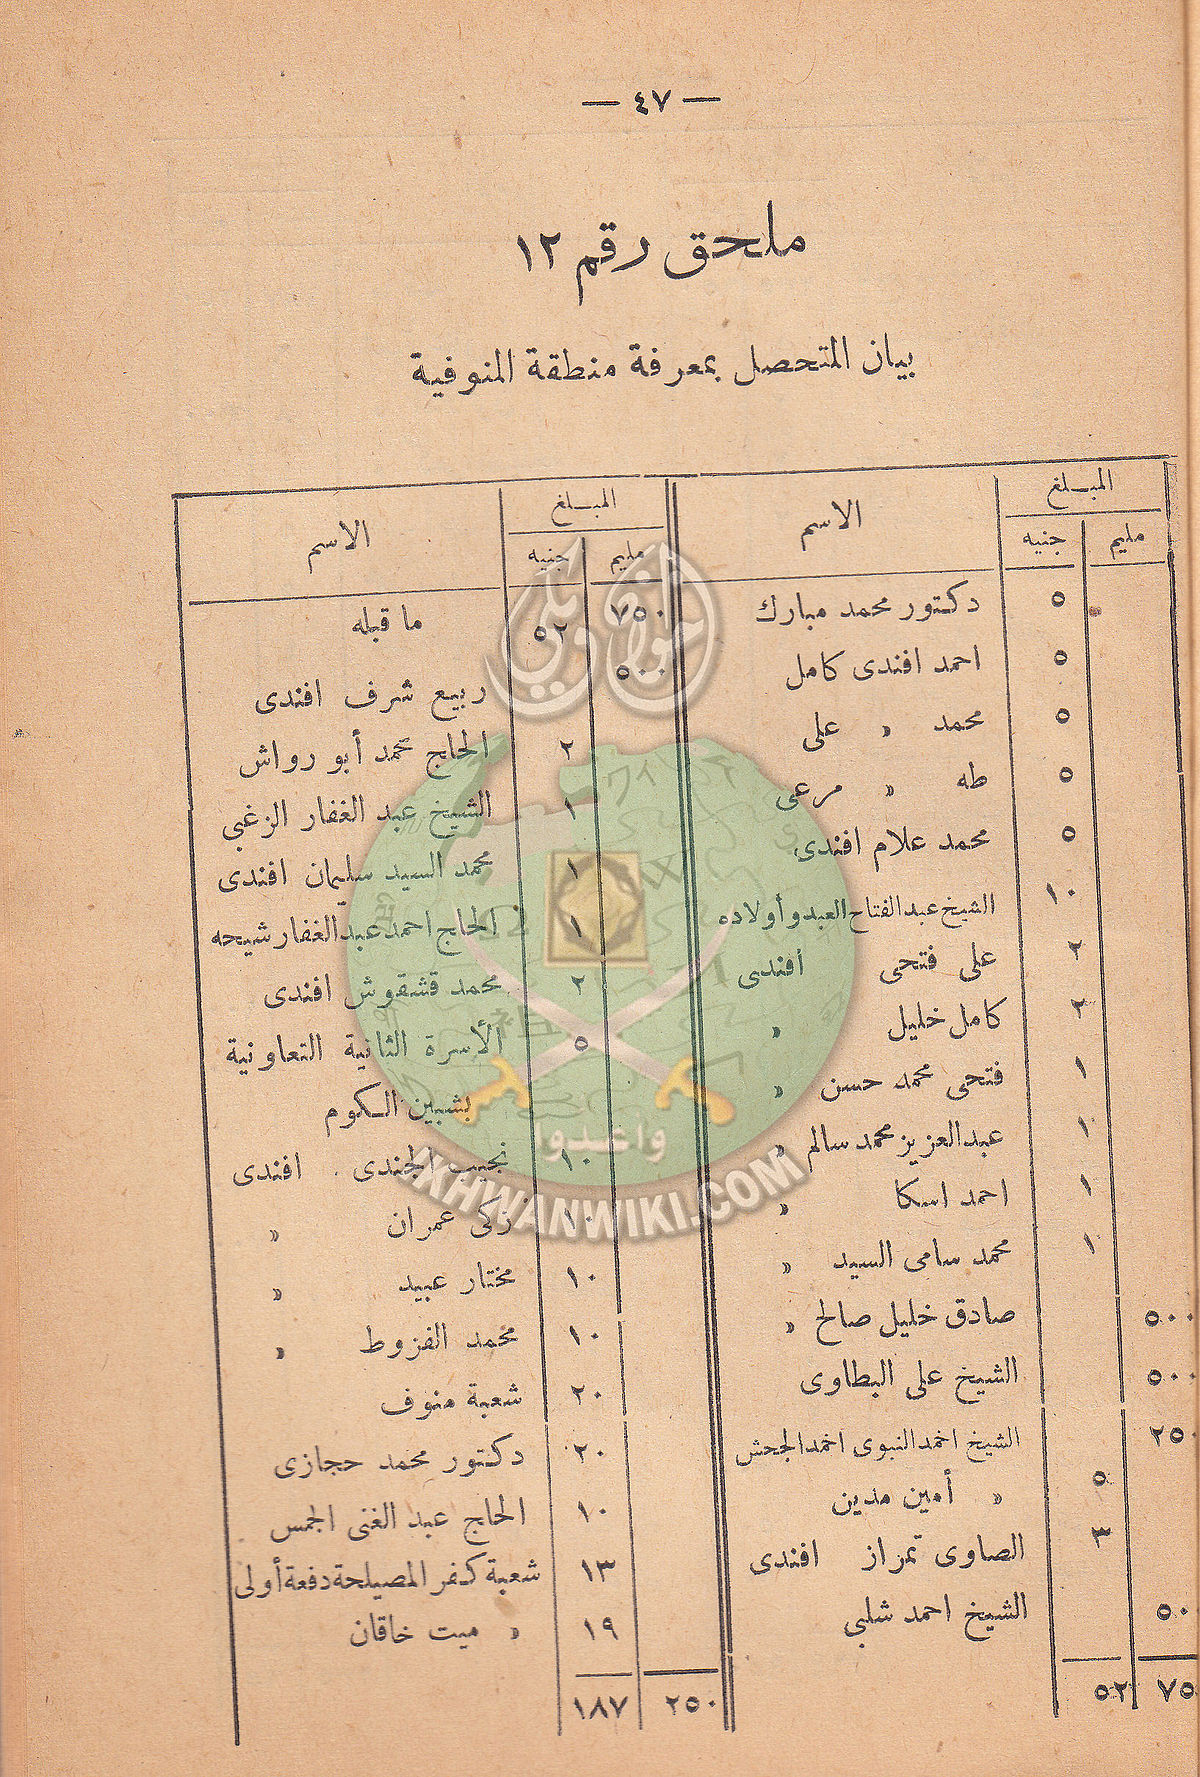 — ٤٧ —
ملحق رقم ١٢
بيان المتحصل بمعرفة منطقة المنوفية
المبلغ الاسم
مليم جنيه
٥ دكتور محمد مبارك
٥ احمد افندى كامل
٥ محمد » على
٥ طه » مرعى
٥ محمد علام افندى
١٠ الشيخ عبد الفتاح العبد وأولاده
٢ على فتحى افندى
٢ كامل خليل »
١ فتحى محمد حسن »
١ عبد العزيز محمد سالم »
١ احمد اسكا »
١ محمد سامى السيد »
٥٠٠ صادق خليل صالح »
٥٠٠ الشيخ على البطاوى
٢٥٠ الشيخ احمد النبوى احمد الجحش
٥ » أمين مدين
٣ الصاوى تمراز افندى
٥٠ الشيخ احمد شلبى
٧٥ ٥٢
المبلغ الاسم
مليم جنيه
٧٥٠ ٥٢ ما قبله
٥٠٠ ربيع شرف افندى
٢ الحاج محمد أبو رواش
١ الشيخ عبد الغفار الزغبى
١ محمد السيد سليمان افندى
١ الحاج احمد عبد الغفار شيحه
٢ محمد قشقوش افندى
٥ الأسرة الثانية التعاونية
بشبين الكوم
١٠ نجيب الجندى افندى
١٠ زكى عمران »
١٠ مختار عبيد »
١٠ محمد الفزوط »
٢٠ شعبة منوف
٢٠ دكتور محمد حجازى
١٠ الحاج عبد الغنى الجمس
١٣ شعبة كفر المصيلحة دفعة أولى
١٩ » ميت خاقان
٢٥٠ ١٨٧
إخوان ويكي
وأعدوا
IKHWANWIKI.COM